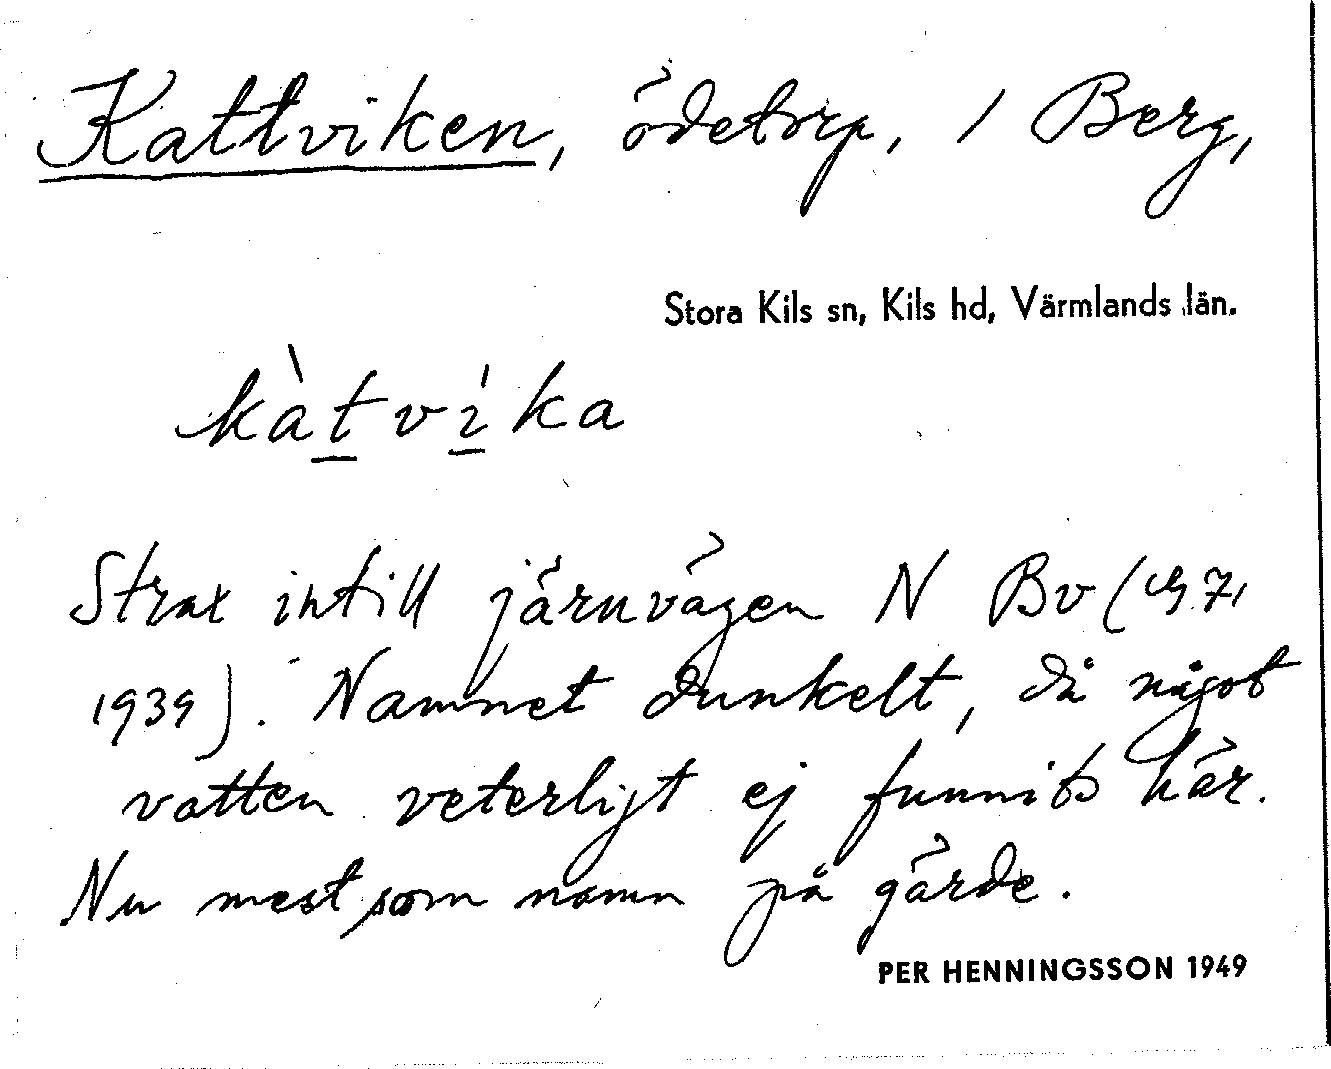 Kattviken, ödetorp, / Berg,
Stora Kils sn, Kils hd, Värmlands län.
kàtvíka
Strax intill järnvägen N Bv (
1939). Namnet dunkelt, då något
vatten veterligt ej funnits här.
Nu mest som namn på gärde.
PER HENNINGSSON 1949